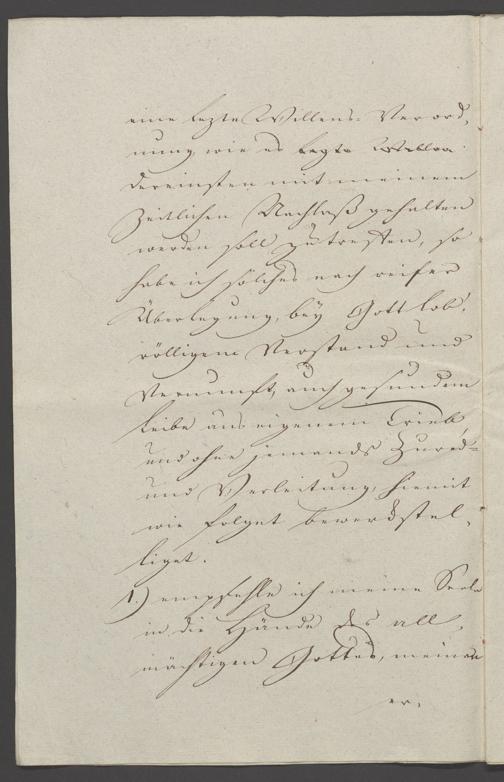 eine lezte Willens-Verord,
nung wie es lezte Willen
dereinsten mit meinem
Zeitlichen Nachlaß gehalten
werden soll zu treffen, so
habe ich solches nach reifer
Überlegung, bey Gott lob!
völligem Verstand und
Vernunft, auch gesundem
Leibe aus eigenem Trieb,
und ohne jemands Zured=
und Verleitung, hiemit
wie folget bewerckstel,
liget.
1.) empfehle ich meine Seele
in die Hände des all,
mächtigen Gottes, meinen
er,